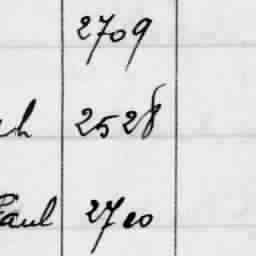 2709
ch 2528
Paul 2710